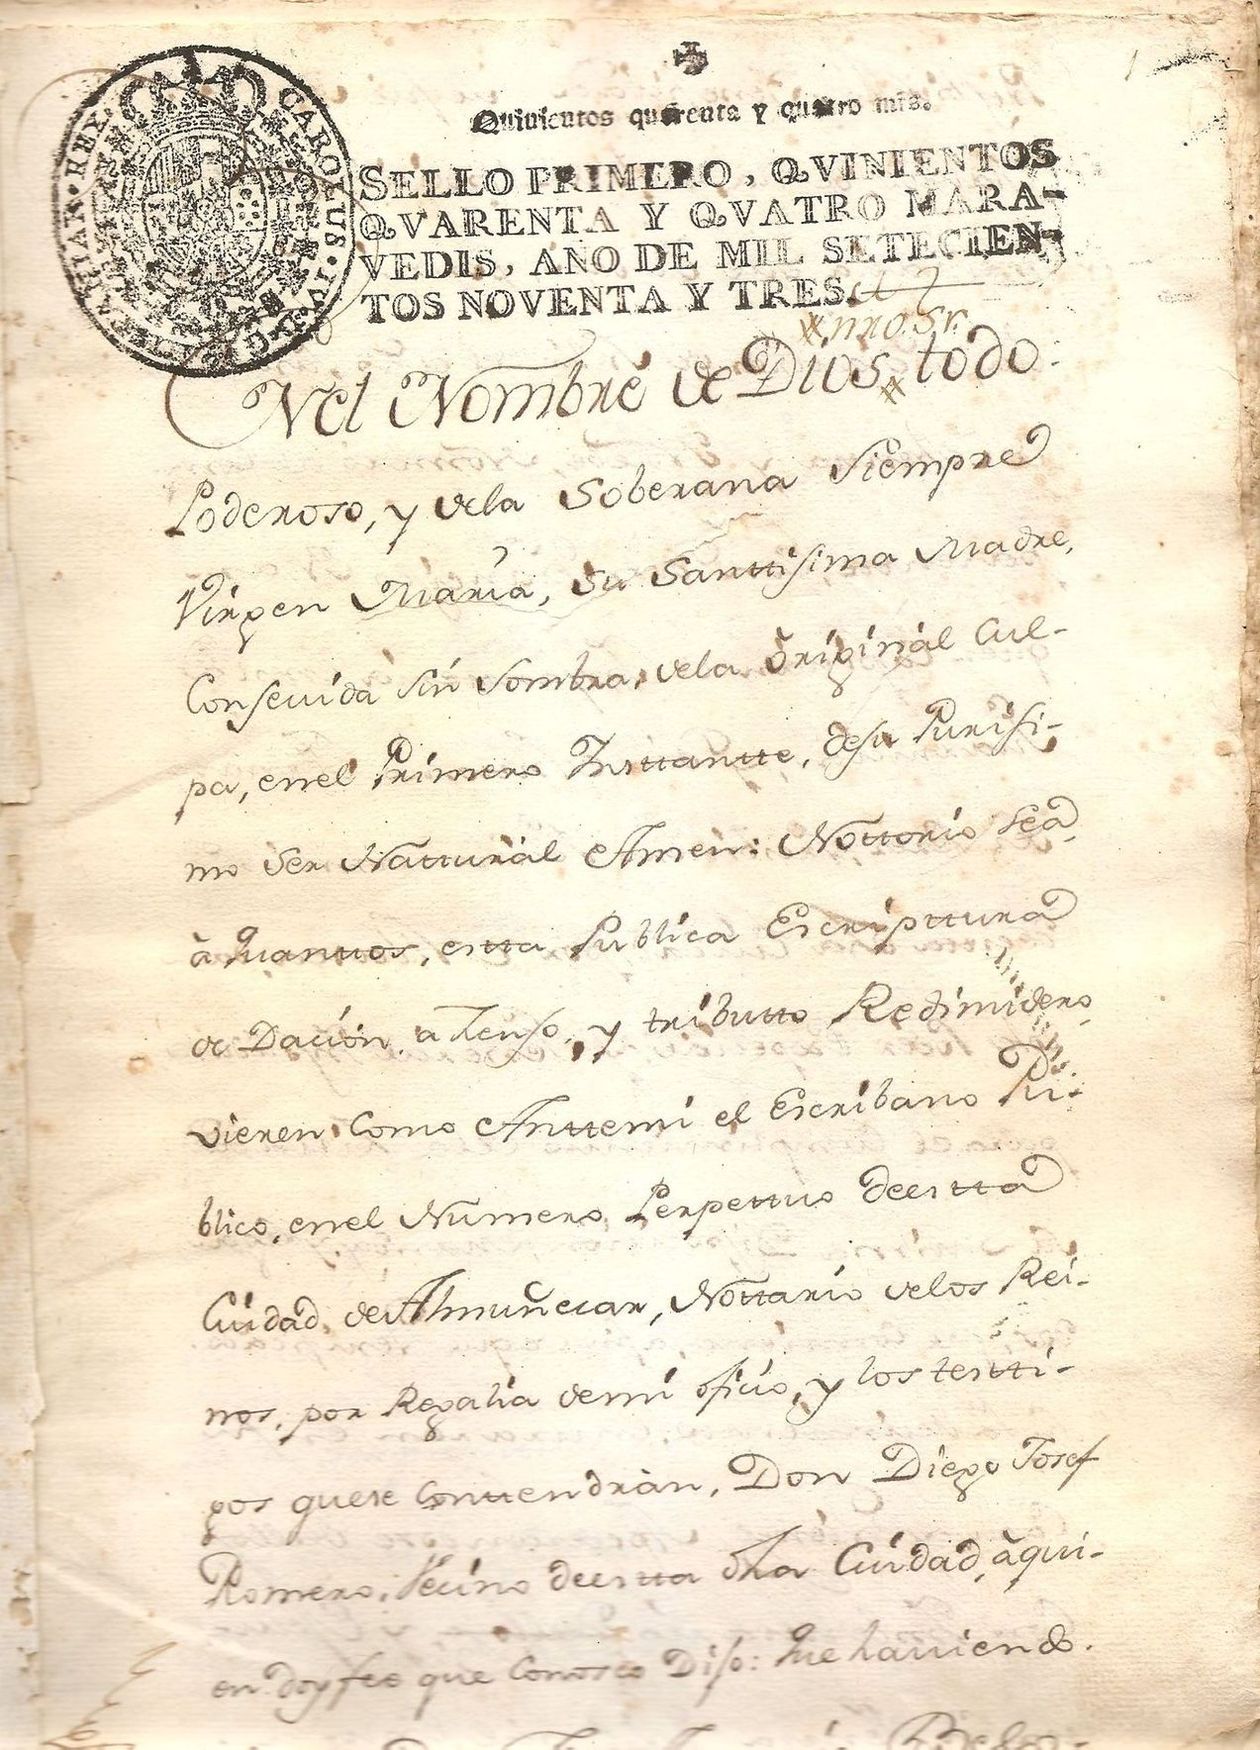 1
Quinientos quarenta y quatro mrs.
CAROLUS · IV · D · G · HISPANIAR · REX ·
SELLO PRIMERO, QVINIENTOS
QVARENTA Y QVATRO MARA-
VEDIS, AÑO DE MIL SETECIEN-
TOS NOVENTA Y TRES.
# nro. Sr.
Nel Nombre de Dios # todo:
Poderoso, y dela Soberana Siempre
Virgen Maria, su Santtisima Madre,
Consevida sin sombra, dela original Cul-
pa, enel Primero Insttantte, desu Purisi-
mo Ser Natturál Amen: Nottorio sea
à Quanttos, estta Publica Escripttura
de Dación, a Zenso, y tributto Redimidero,
vieren como Anttemi el Escribano Pú-
blico, enel Numero, Perpettuo deestta
Ciudad, de Almuñecar, Nottario delos Rei-
nos, por Regalia demi oficio, y los testti-
gos quese Conttendràn, Don Diego Josef
Romero, Vecino deestta dha Ciudad, àqui-
en doyfeé que Conosco Diso: Que haviendo.